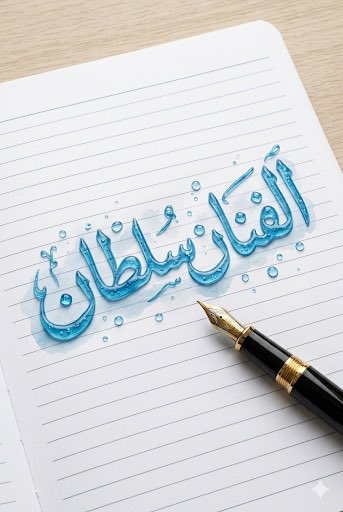 الفنان سلطان